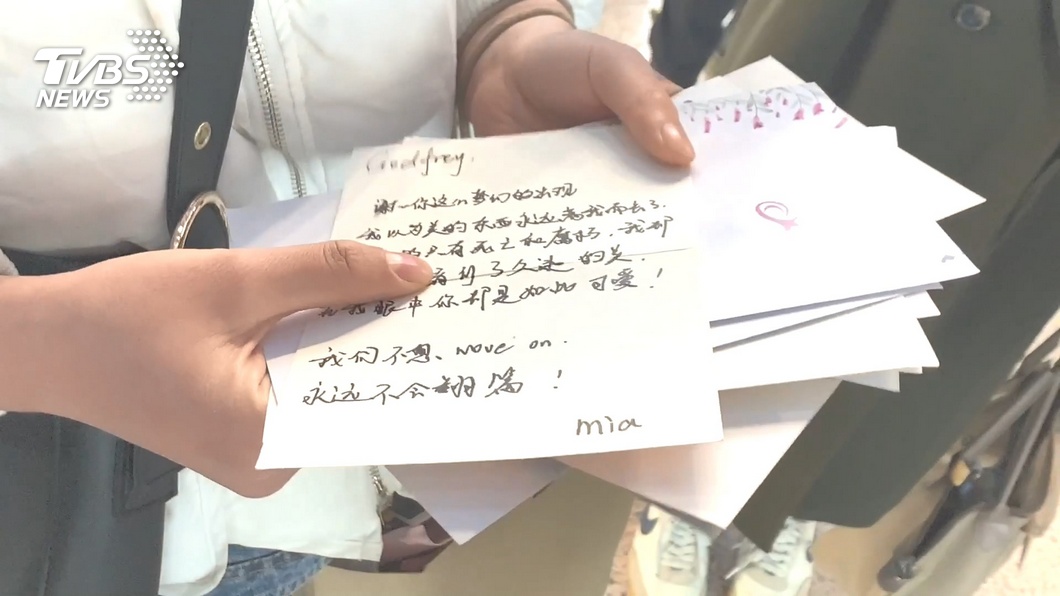 TVBS
NEWS
Godfrey,
谢一你这个梦幻的出现
我以为美的东西永远离我而去了.
只有死亡和腐朽, 我却
看到了久违的美.
在我眼中你却是如此可爱!
我们不想、move on.
永远不会翻篇!
mia